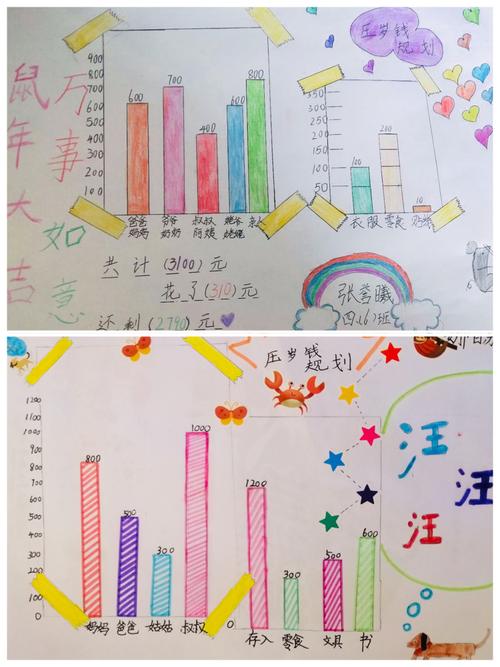 鼠年大吉
万事如意
压岁钱
规划
900
800
700
600
500
400
300
200
100
600
700
400
600
800
爸爸 爷爷 叔叔 姥爷
妈妈 奶奶 阿姨 姥姥
350
300
250
200
150
100
50
100
200
10
衣服 零食
共计(3100)元
花了(310)元
还剩(2790)元
张誉曦
四(6)班
压岁钱
规划
1200
1100
1000
900
800
700
600
500
400
300
200
100
0
800
500
300
1000
妈妈 爸爸 姑姑 叔叔
0
1200
300
500
600
存入 零食 文具 书
汪
汪
汪